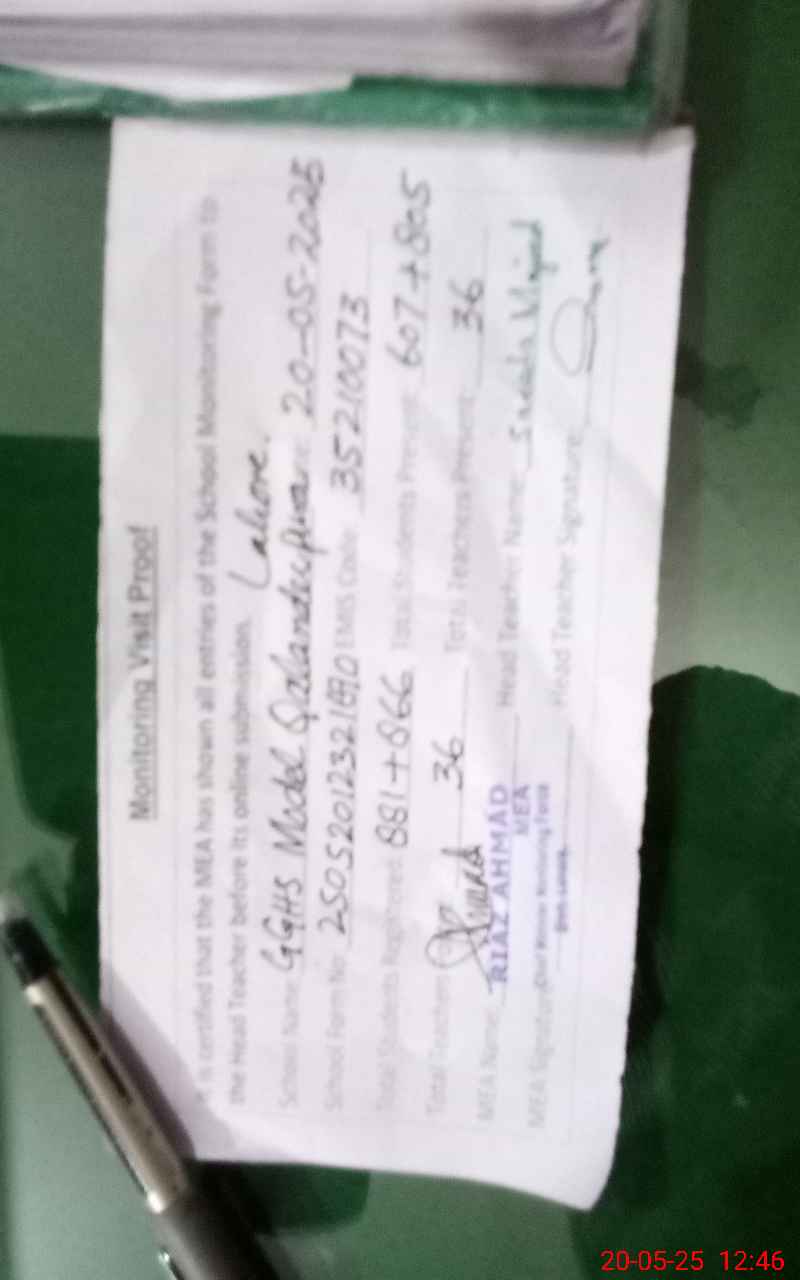 Monitoring Visit Proof
It is certified that the MEA has shown all entries of the School Monitoring Form to
the Head Teacher before its online submission. Lahore.
School Name GGHS Model Qalanderpura 20-05-2025
School Form No 250520123216 EMIS Code 35210073
Total Students Registered: 881+866 Total Students Present: 607+805
Total Teachers 36 Total Teachers Present: 36
MEA Name: RIAZ AHMAD Head Teacher Name: Majid
MEA
MEA Signature Head Teacher Signature:
20-05-25 12:46